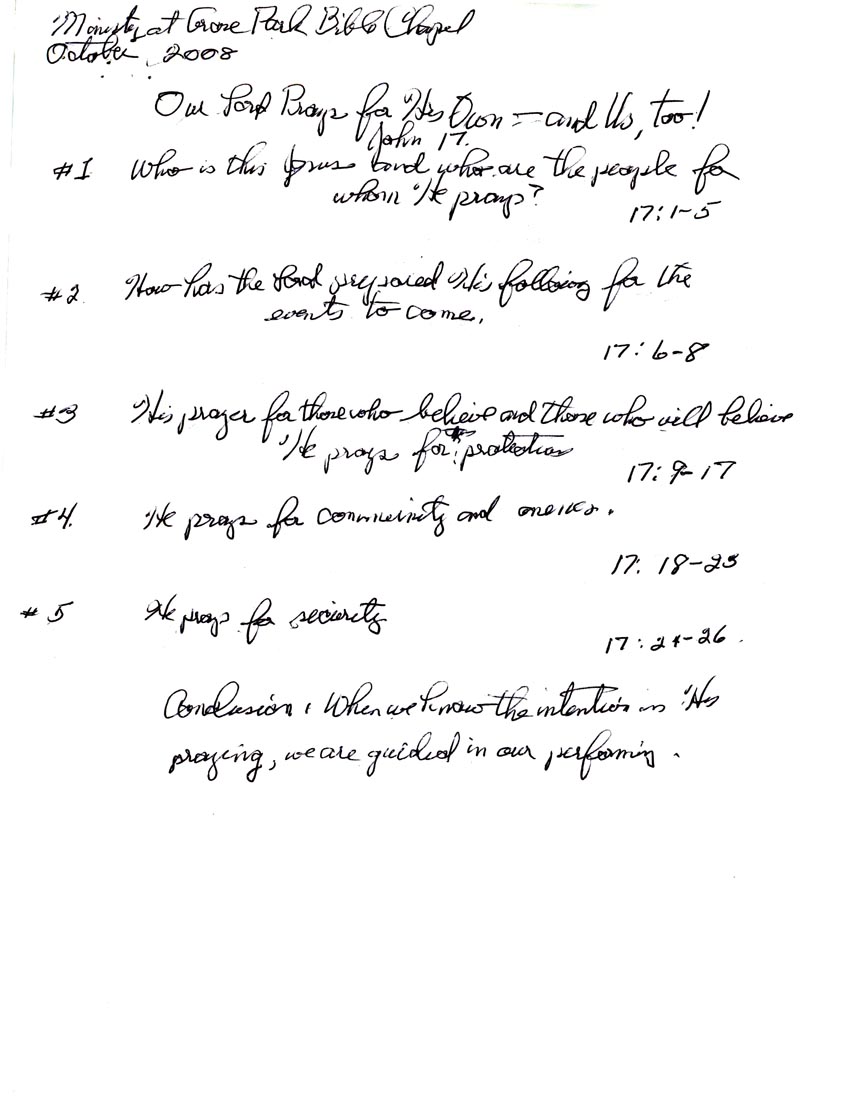 Ministry at Grove Park Bible Chapel
October, 2008
Our Lord Prays for His Own = and Us, too!
John 17.
#1 Who is this Jesus and who are the people for
whom He prays?
17:1-5
#2. How has the Lord prepared His following for the
events to come.
17:6-8
#3 His prayer for those who believe and those who will believe
He prays for protection
17:9-17
#4. He prays for community and oneness.
17:18-23
#5 He prays for security
17:24-26.
Conclusion: When we know the intention in His
praying, we are guided in our performing.